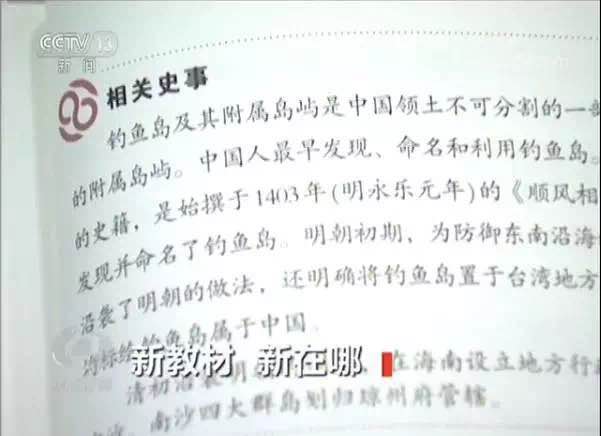 CCTV 13
新闻
相关史事
钓鱼岛及其附属岛屿是中国领土不可分割的一部
的附属岛屿。中国人最早发现、命名和利用钓鱼岛。
的史籍，是始撰于1403年(明永乐元年)的《顺风相
发现并命名了钓鱼岛。明朝初期，为防御东南沿海
沿袭了明朝的做法，还明确将钓鱼岛置于台湾地方
均标绘钓鱼岛属于中国。
新教材 新在哪
清初沿袭明 在海南设立地方行政
南沙四大群岛划归琼州府管辖。